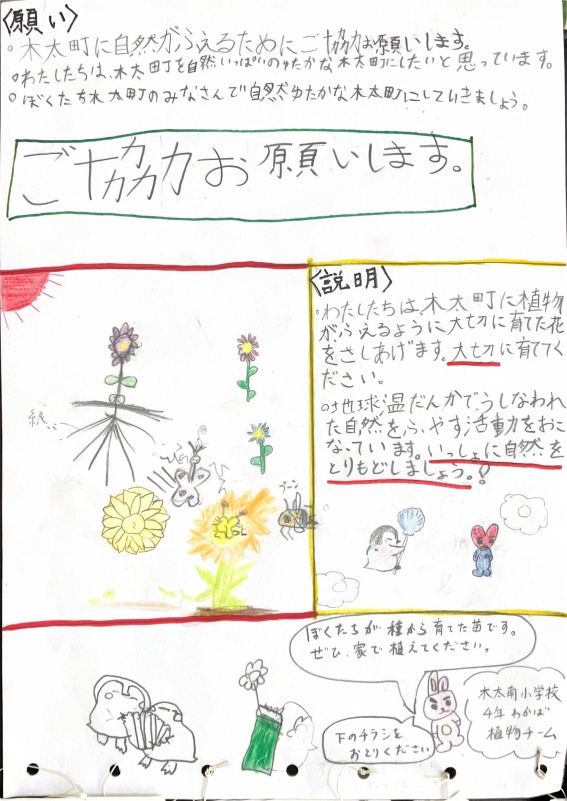 〈願い〉
○木太町に自然がふえるためにご協力お願いします。
○わたしたちは、木太町を自然いっぱいのゆたかな木太町にしたいと思っています。
○ぼくたち木太町のみなさんで自然ゆたかな木太町にしていきましょう。
ご協力お願いします。
〈説明〉
○わたしたちは、木太町に植物
がふえるように大切に育てた花
をさしあげます。大切に育ててく
ださい。
○地球温だんかでうしなわれ
た自然をふやす活動をおこ
なっています。いっしょに自然を
とりもどしましょう。!
ブーン
ぼくたちが種から育てた苗です。
ぜひ、家で植えてください。
下のチラシを
おとりください
木太南小学校
4年わかば
植物チーム